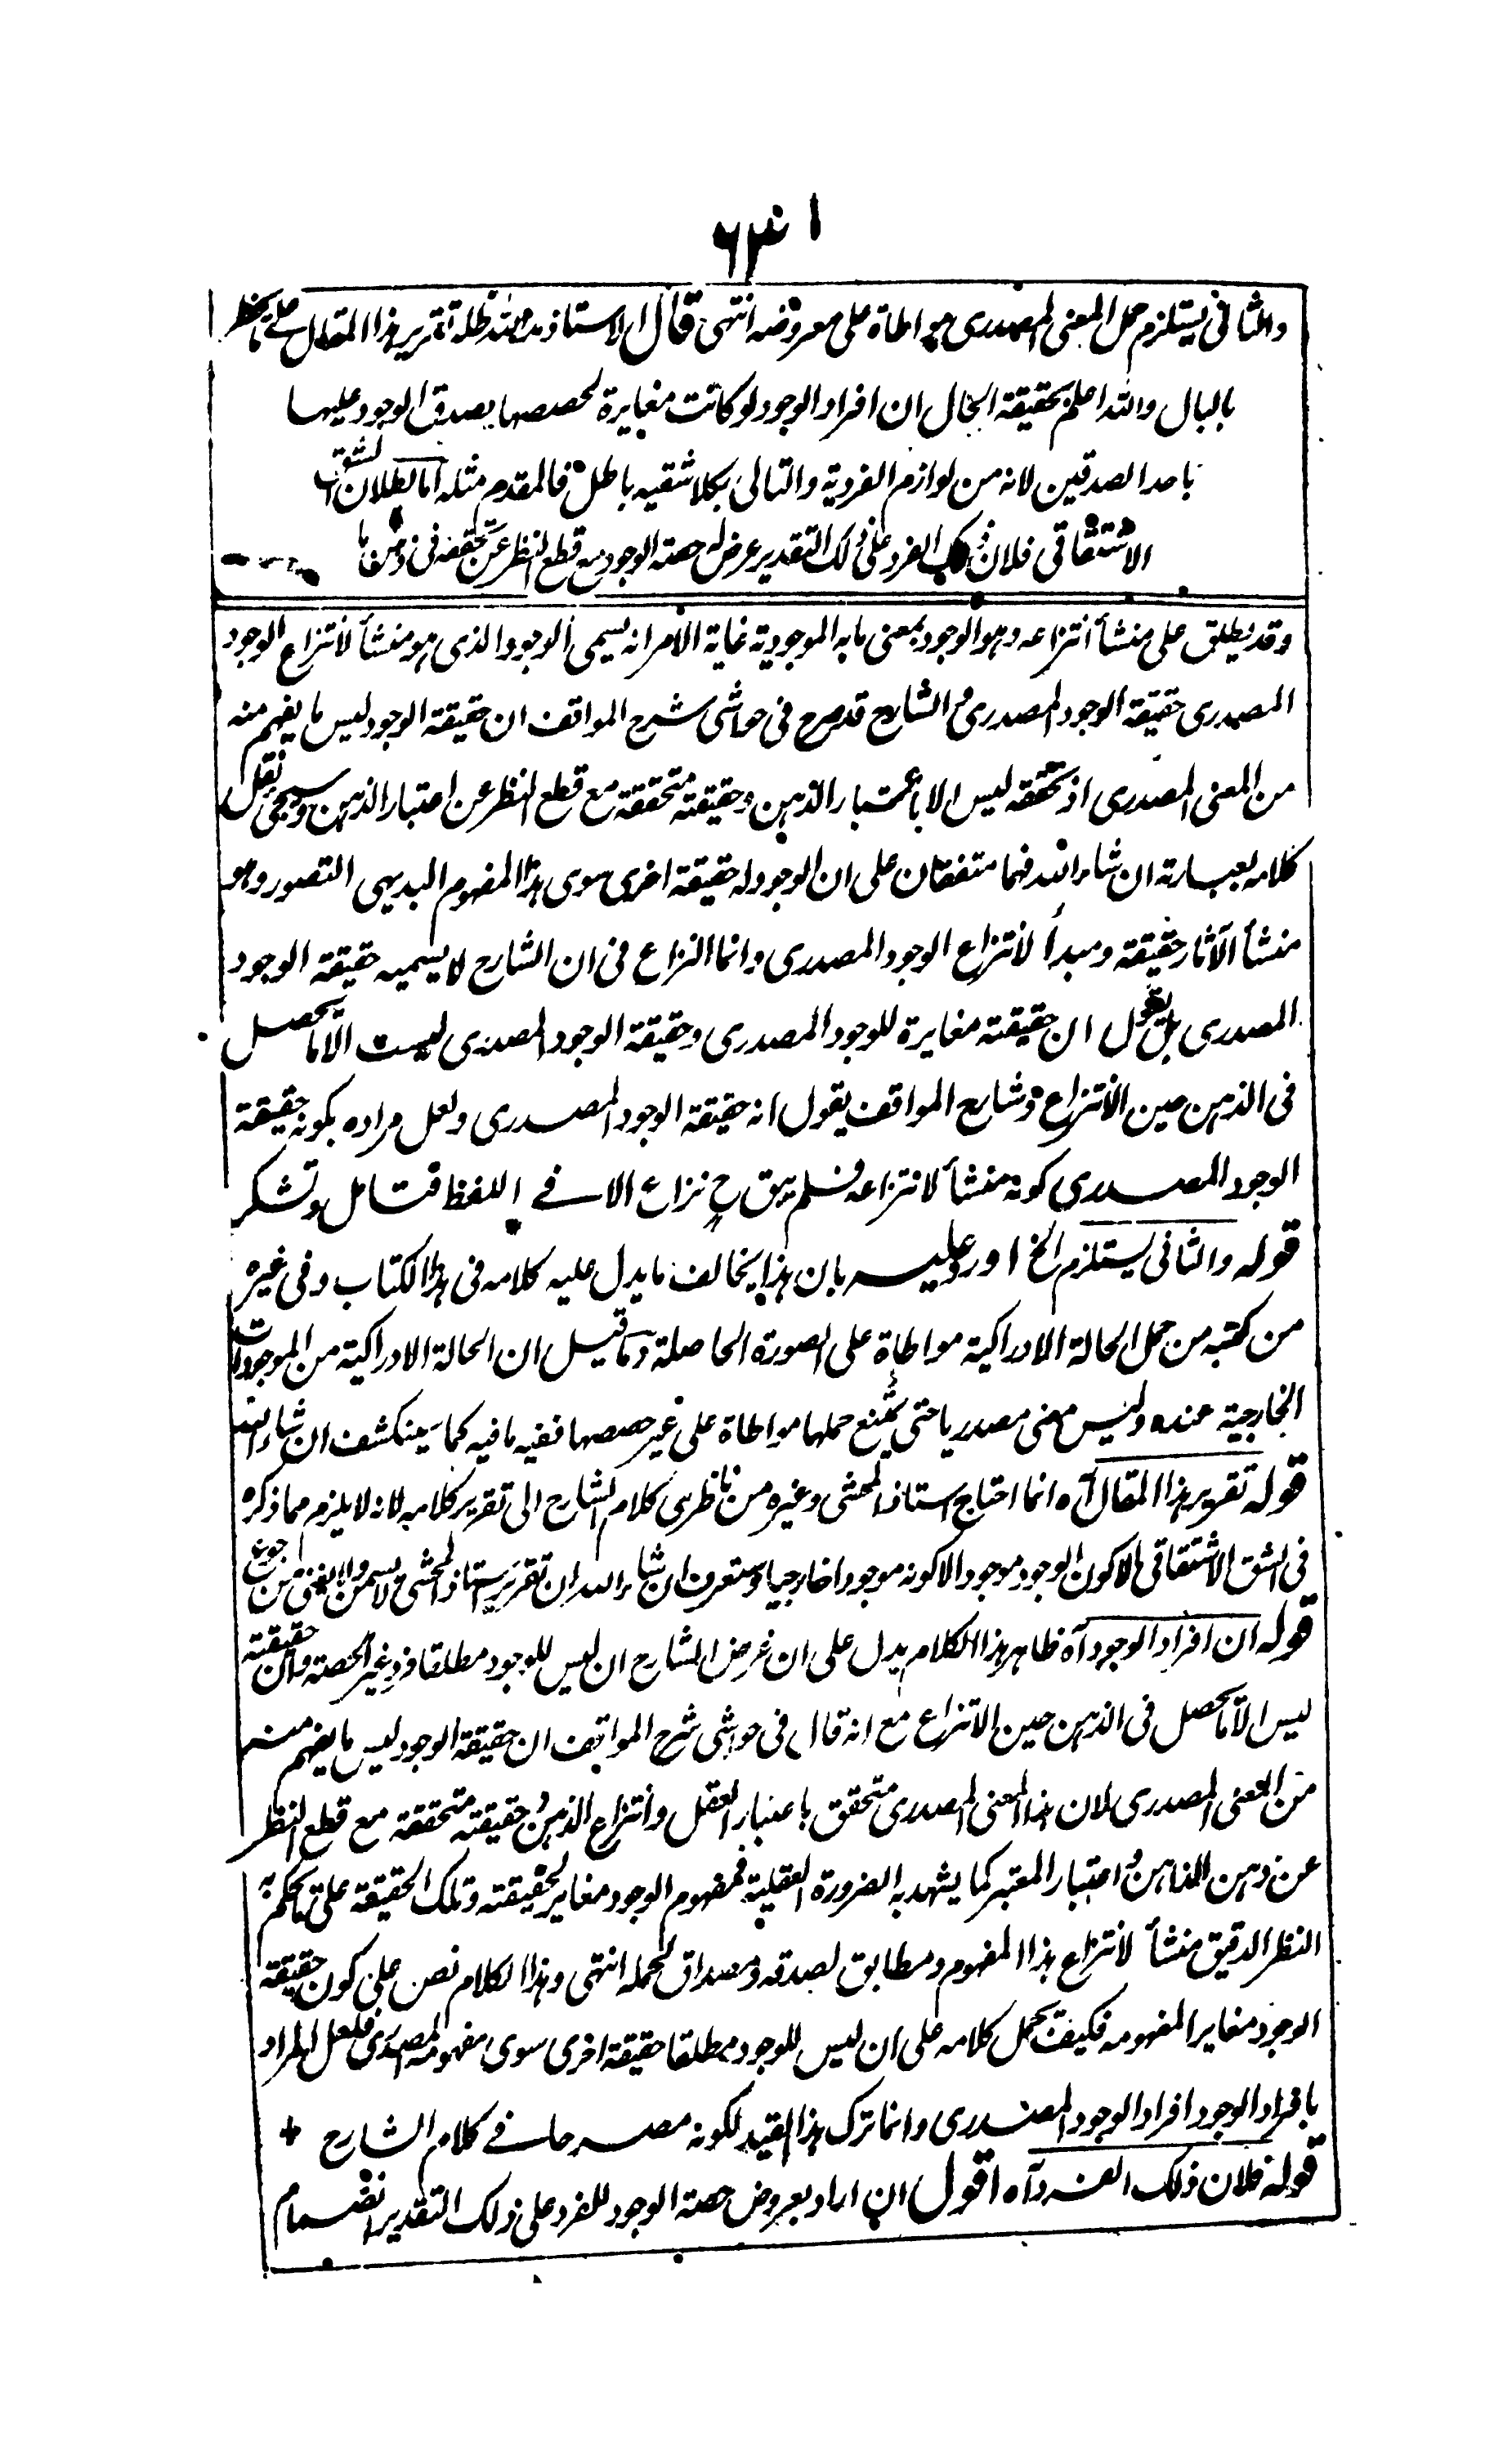 والثانى يستلزم حمل المعنى المصدرى مواطاة على معروضه انتهى قال الاستاذ مد الله ظله تقرير هذا المقال على ما يخطر
بالبال والله اعلم بحقيقة الحال ان افراد الوجود لو كانت مغايرة لحصصها يصدق الوجود عليها
باحد الصدقين لانه من لوازم الفردية والتالى بكلا شقيه باطل فالمقدم مثله اما بطلان الشق
الاشتقاقى فلان ذلك الفرد على ذلك التقدير عرض له حصة الوجود مع قطع النظر عن تحققه فى ذهن ما
وقد يطلق على منشأ انتزاعه وهو الوجود بمعنى ما به الموجودية غاية الامر انه يسمى الوجود الذى هو منشأ لانتزاع الوجود
المصدرى حقيقة الوجود المصدرى و الشارح قد صرح فى حواشى شرح المواقف ان حقيقة الوجود ليس ما يفهم منه
من المعنى المصدرى اذ تحققه ليس الا باعتبار الذهن وحقيقته متحققة مع قطع النظر عن اعتبار الذهن وسيجئ نقل
كلامه بعبارته ان شاء الله فهما متفقان على ان الوجود له حقيقة اخرى سوى هذا المفهوم البديهى التصور وهو
منشأ الآثار حقيقة ومبدأ لانتزاع الوجود المصدرى وانما النزاع فى ان الشارح لا يسميه حقيقة الوجود
المصدرى بل يقول ان حقيقته مغايرة للوجود المصدرى وحقيقة الوجود المصدرى ليست الا ما يحصل
فى الذهن حين الانتزاع وشارح المواقف يقول انه حقيقة الوجود المصدرى ولعل مراده بكونه حقيقة
الوجود المصدرى كونه منشأ لانتزاعه فلم يبق ح نزاع الا فى اللفظ فتامل وتشكر
قوله والثانى يستلزم الخ اورد عليه بان هذا يخالف ما يدل عليه كلامه فى هذا الكتاب وفى غيره
من كتبه من حمل الحالة الادراكية مواطاة على الصورة الحاصلة وما قيل ان الحالة الادراكية من الموجودات
الخارجية عنده وليس معنى مصدريا حتى يمتنع حملها مواطاة على غير حصصها ففيه ما فيه كما سينكشف ان شاء الله
قوله تقرير هذا المقال آه انما احتاج استاذ المحشى وغيره من ناظرى كلام الشارح الى تقرير كلامه لانه لا يلزم مما ذكره
فى الشق الاشتقاقى الا كون الوجود موجودا لا كونه موجودا خارجيا وستعرف ان شاء الله ان تقرير استاذ المحشى لا يسمن ولا يغنى من جوع
قوله ان افراد الوجود آه ظاهر هذا الكلام يدل على ان غرض الشارح ان ليس للوجود مطلقا فرد غير الحصة وان حقيقته
ليس الا ما يحصل فى الذهن حين الانتزاع مع انه قال فى حواشى شرح المواقف ان حقيقة الوجود ليس ما يفهم منه
من المعنى المصدرى لان هذا المعنى المصدرى متحقق باعتبار العقل وانتزاع الذهن و حقيقته متحققة مع قطع النظر
عن ذهن الذاهن و اعتبار المعتبر كما يشهد به الضرورة العقلية فمفهوم الوجود مغاير لحقيقته وتلك الحقيقة على ما يحكم به
النظر الدقيق منشأ لانتزاع هذا المفهوم ومطابق لصدقه ومصداق لحمله انتهى وهذا الكلام نص على كون حقيقة
الوجود مغايرا لمفهومه فكيف يحمل كلامه على ان ليس للوجود مطلقا حقيقة اخرى سوى مفهومه المصدرى فلعل المراد
بافراد الوجود افراد الوجود المصدرى وانما ترك هذا القيد لكونه مصرحا فى كلام الشارح +
قوله فلان ذلك الفرد آه اقول ان اراد بعروض حصة الوجود للفرد على ذلك التقدير انضمام